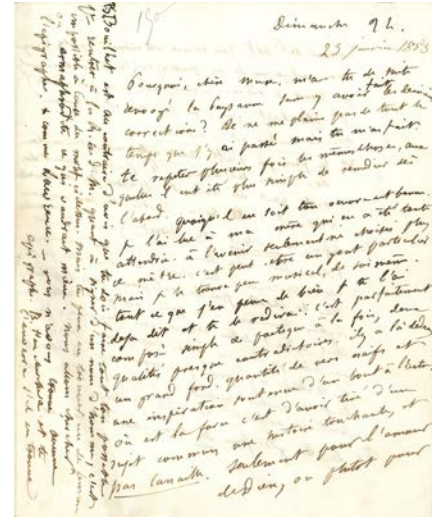 150
Dimanche 9 h.
23 janvier 1853
Pourquoi, chère Muse, m'as-tu de suite
renvoyé la Paysanne sans y avoir fait les dernières
corrections? Je ne me plains pas de tout le
temps que j'y ai passé mais tu m'as fait
te répéter plusieurs fois les mêmes choses, aux
quelles il eut été plus simple de remédier dès
l'abord. quoiqu'il en soit ton œuvre est bonne.
je l'ai lue à ma mère qui en a été toute
attendrie. à l'avenir seulement ne choisis plus
ce mètre. c'est peut-être un goût particulier
mais je le trouve peu musical, de soi-même.
tout ce que j'en pense de bien je te l'ai
déjà dit et te le redirai. c'est parfaitement
composé simple et poétique à la fois, deux
qualités presque contradictoires. il y a là dedans
un grand fond, quantité de vers naïfs et
une inspiration soutenue d'un bout à l'autre.
où est la force c'est d'avoir tiré d'un
sujet commun une histoire touchante, et
pas canaille. seulement pour l'amour
de Dieu, ou plutôt pour
Bouilhet est au contraire d'avis que tu dois faire tout ton possible
pr rentrer à la R. des D. M. quant à
ce qui vaudrait mieux. nous allons chercher
l'épigraphe.
épigraphe. B. en cherchera et te
l'enverra s'il en trouve